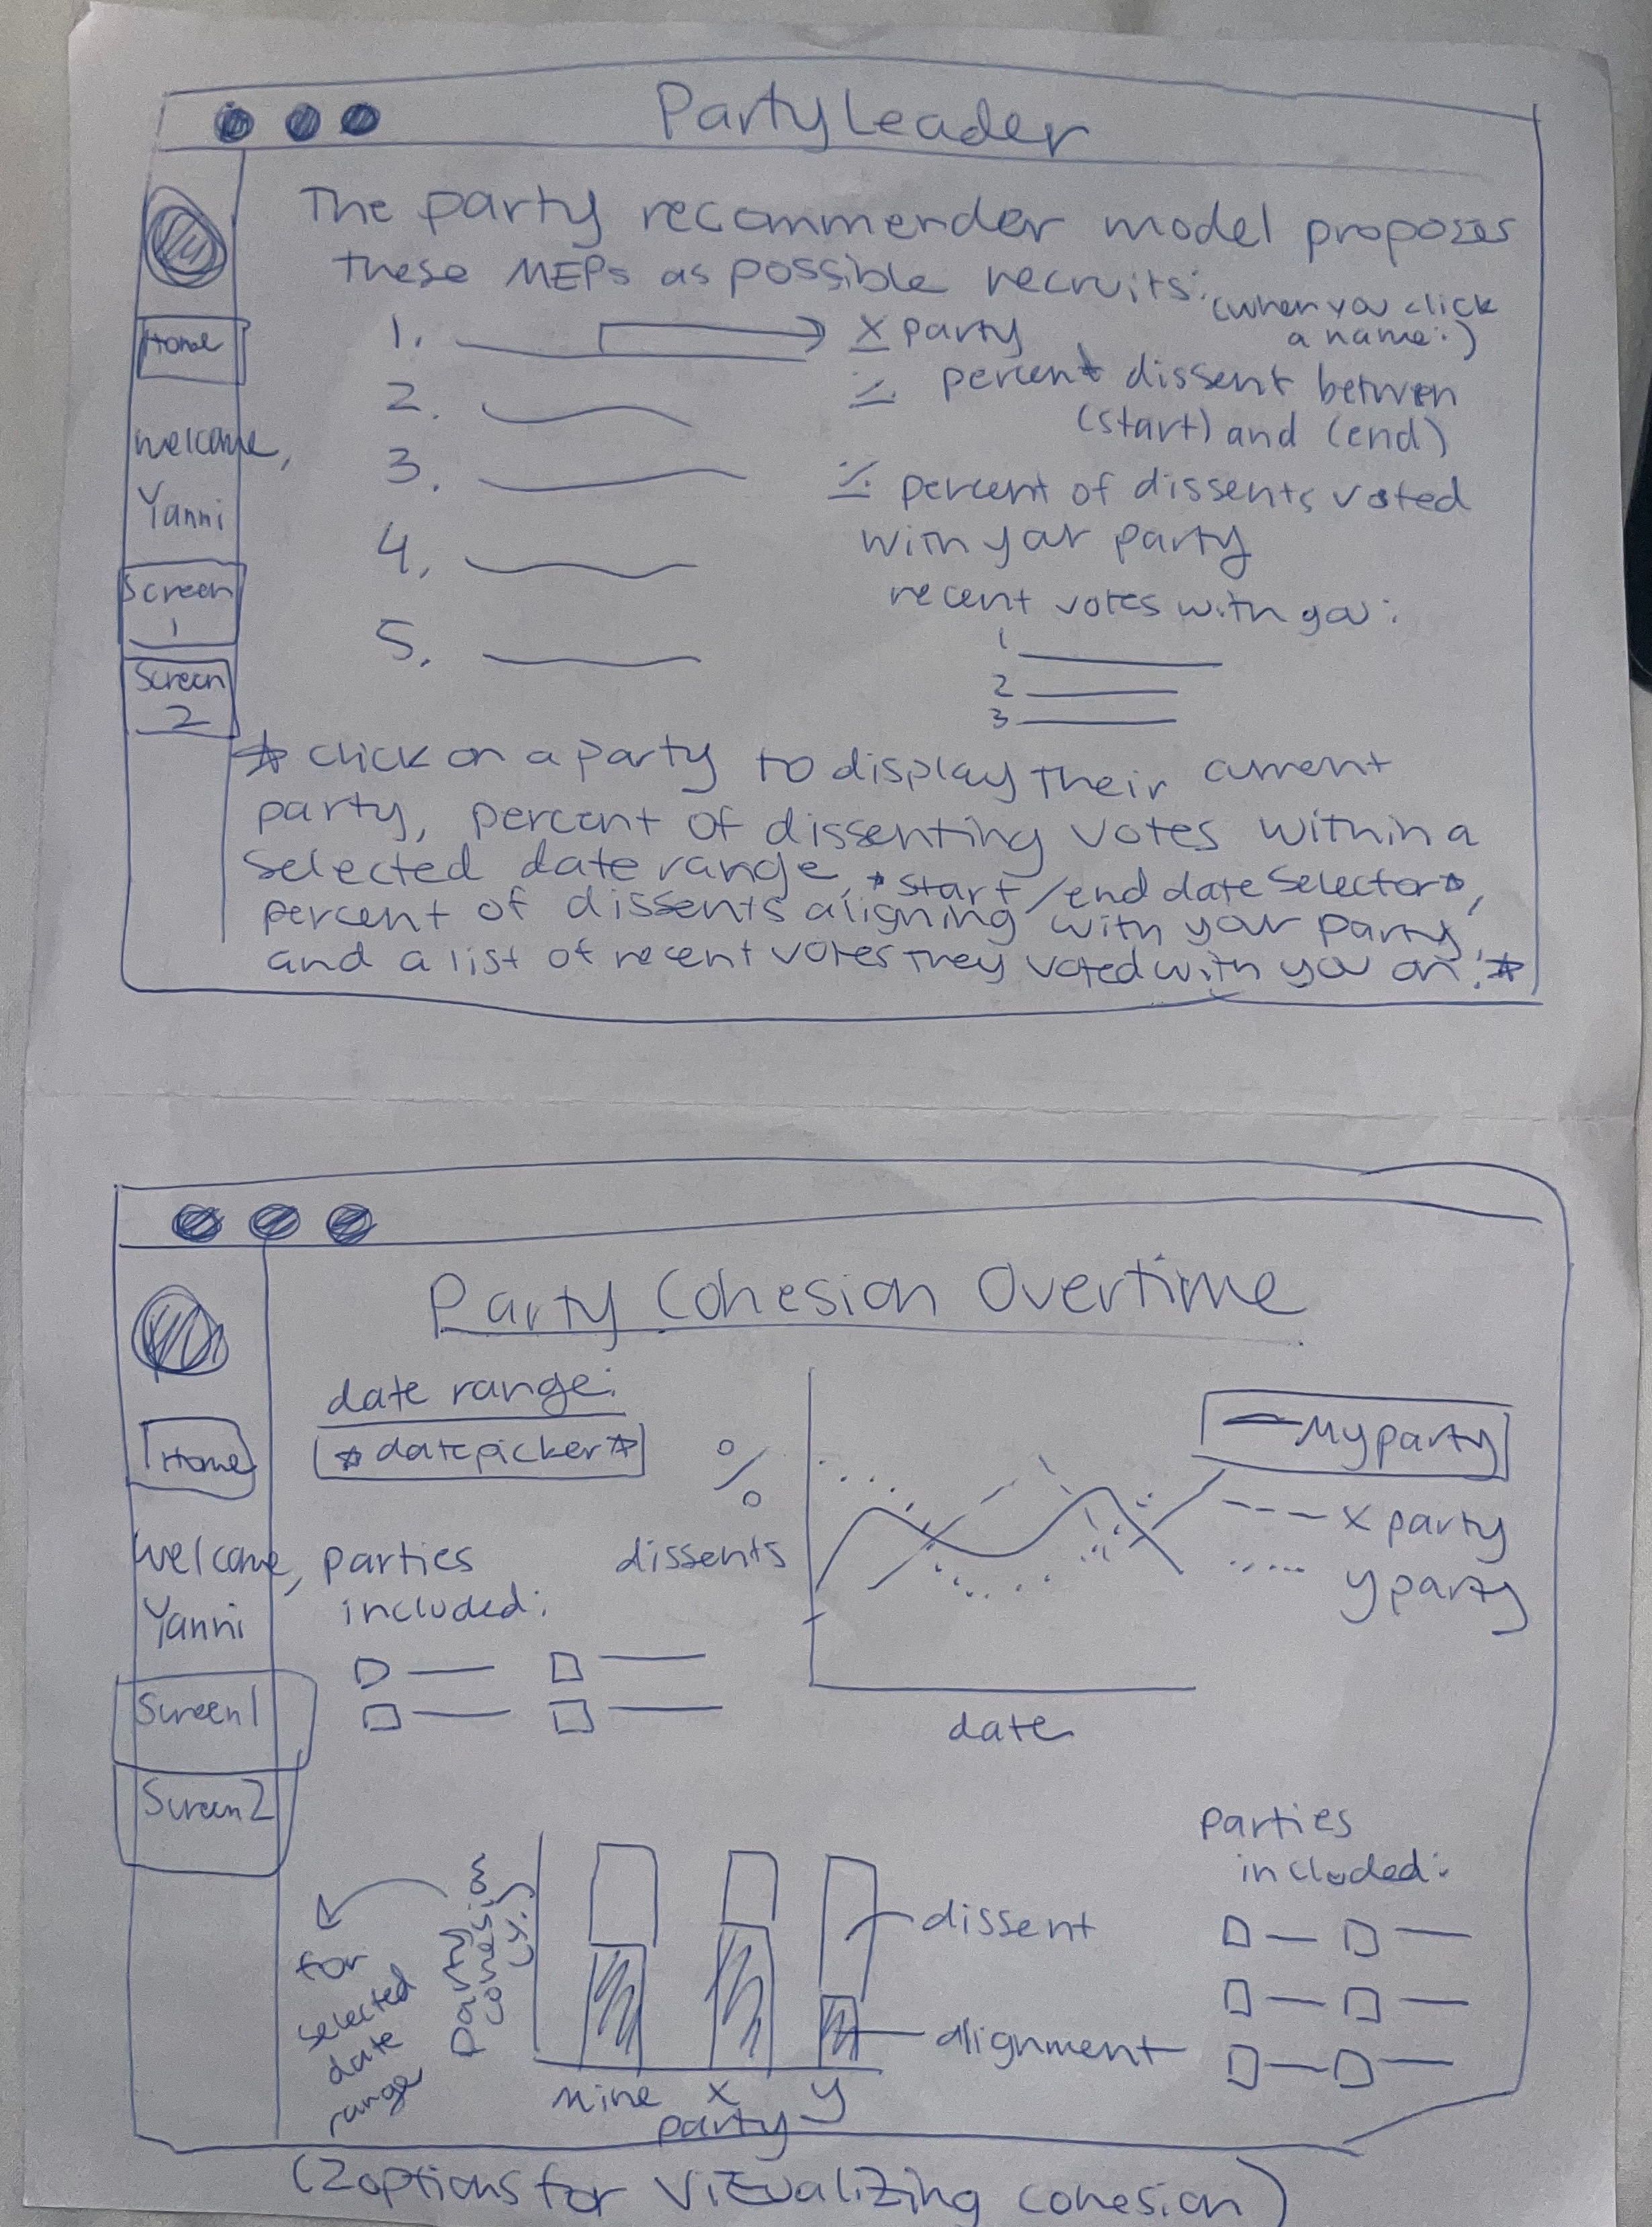 Party Leader
The party recommender model proposes
these MEPs as possible recruits:
(when you click
a name:)
Home
Welcome,
Yanni
Screen
1
Screen
2
1.
2.
3.
4.
5.
X party
% percent dissent between
(start) and (end)
% percent of dissents voted
with your party
recent votes with you:
1
2
3
* click on a party to display their current
party, percent of dissenting votes within a
selected date range, *start/end date selector*,
percent of dissents aligning with your party,
and a list of recent votes they voted with you on. *
Party Cohesion Overtime
Home
Welcome,
Yanni
Screen 1
Screen 2
date range:
*datepicker*
parties
included:
%
dissents
date
My party
--- X party
..... y party
for
selected
date
range
party
cohesion
(%)
Mine X y
party
dissent
alignment
parties
included:
(2 options for visualizing cohesion)